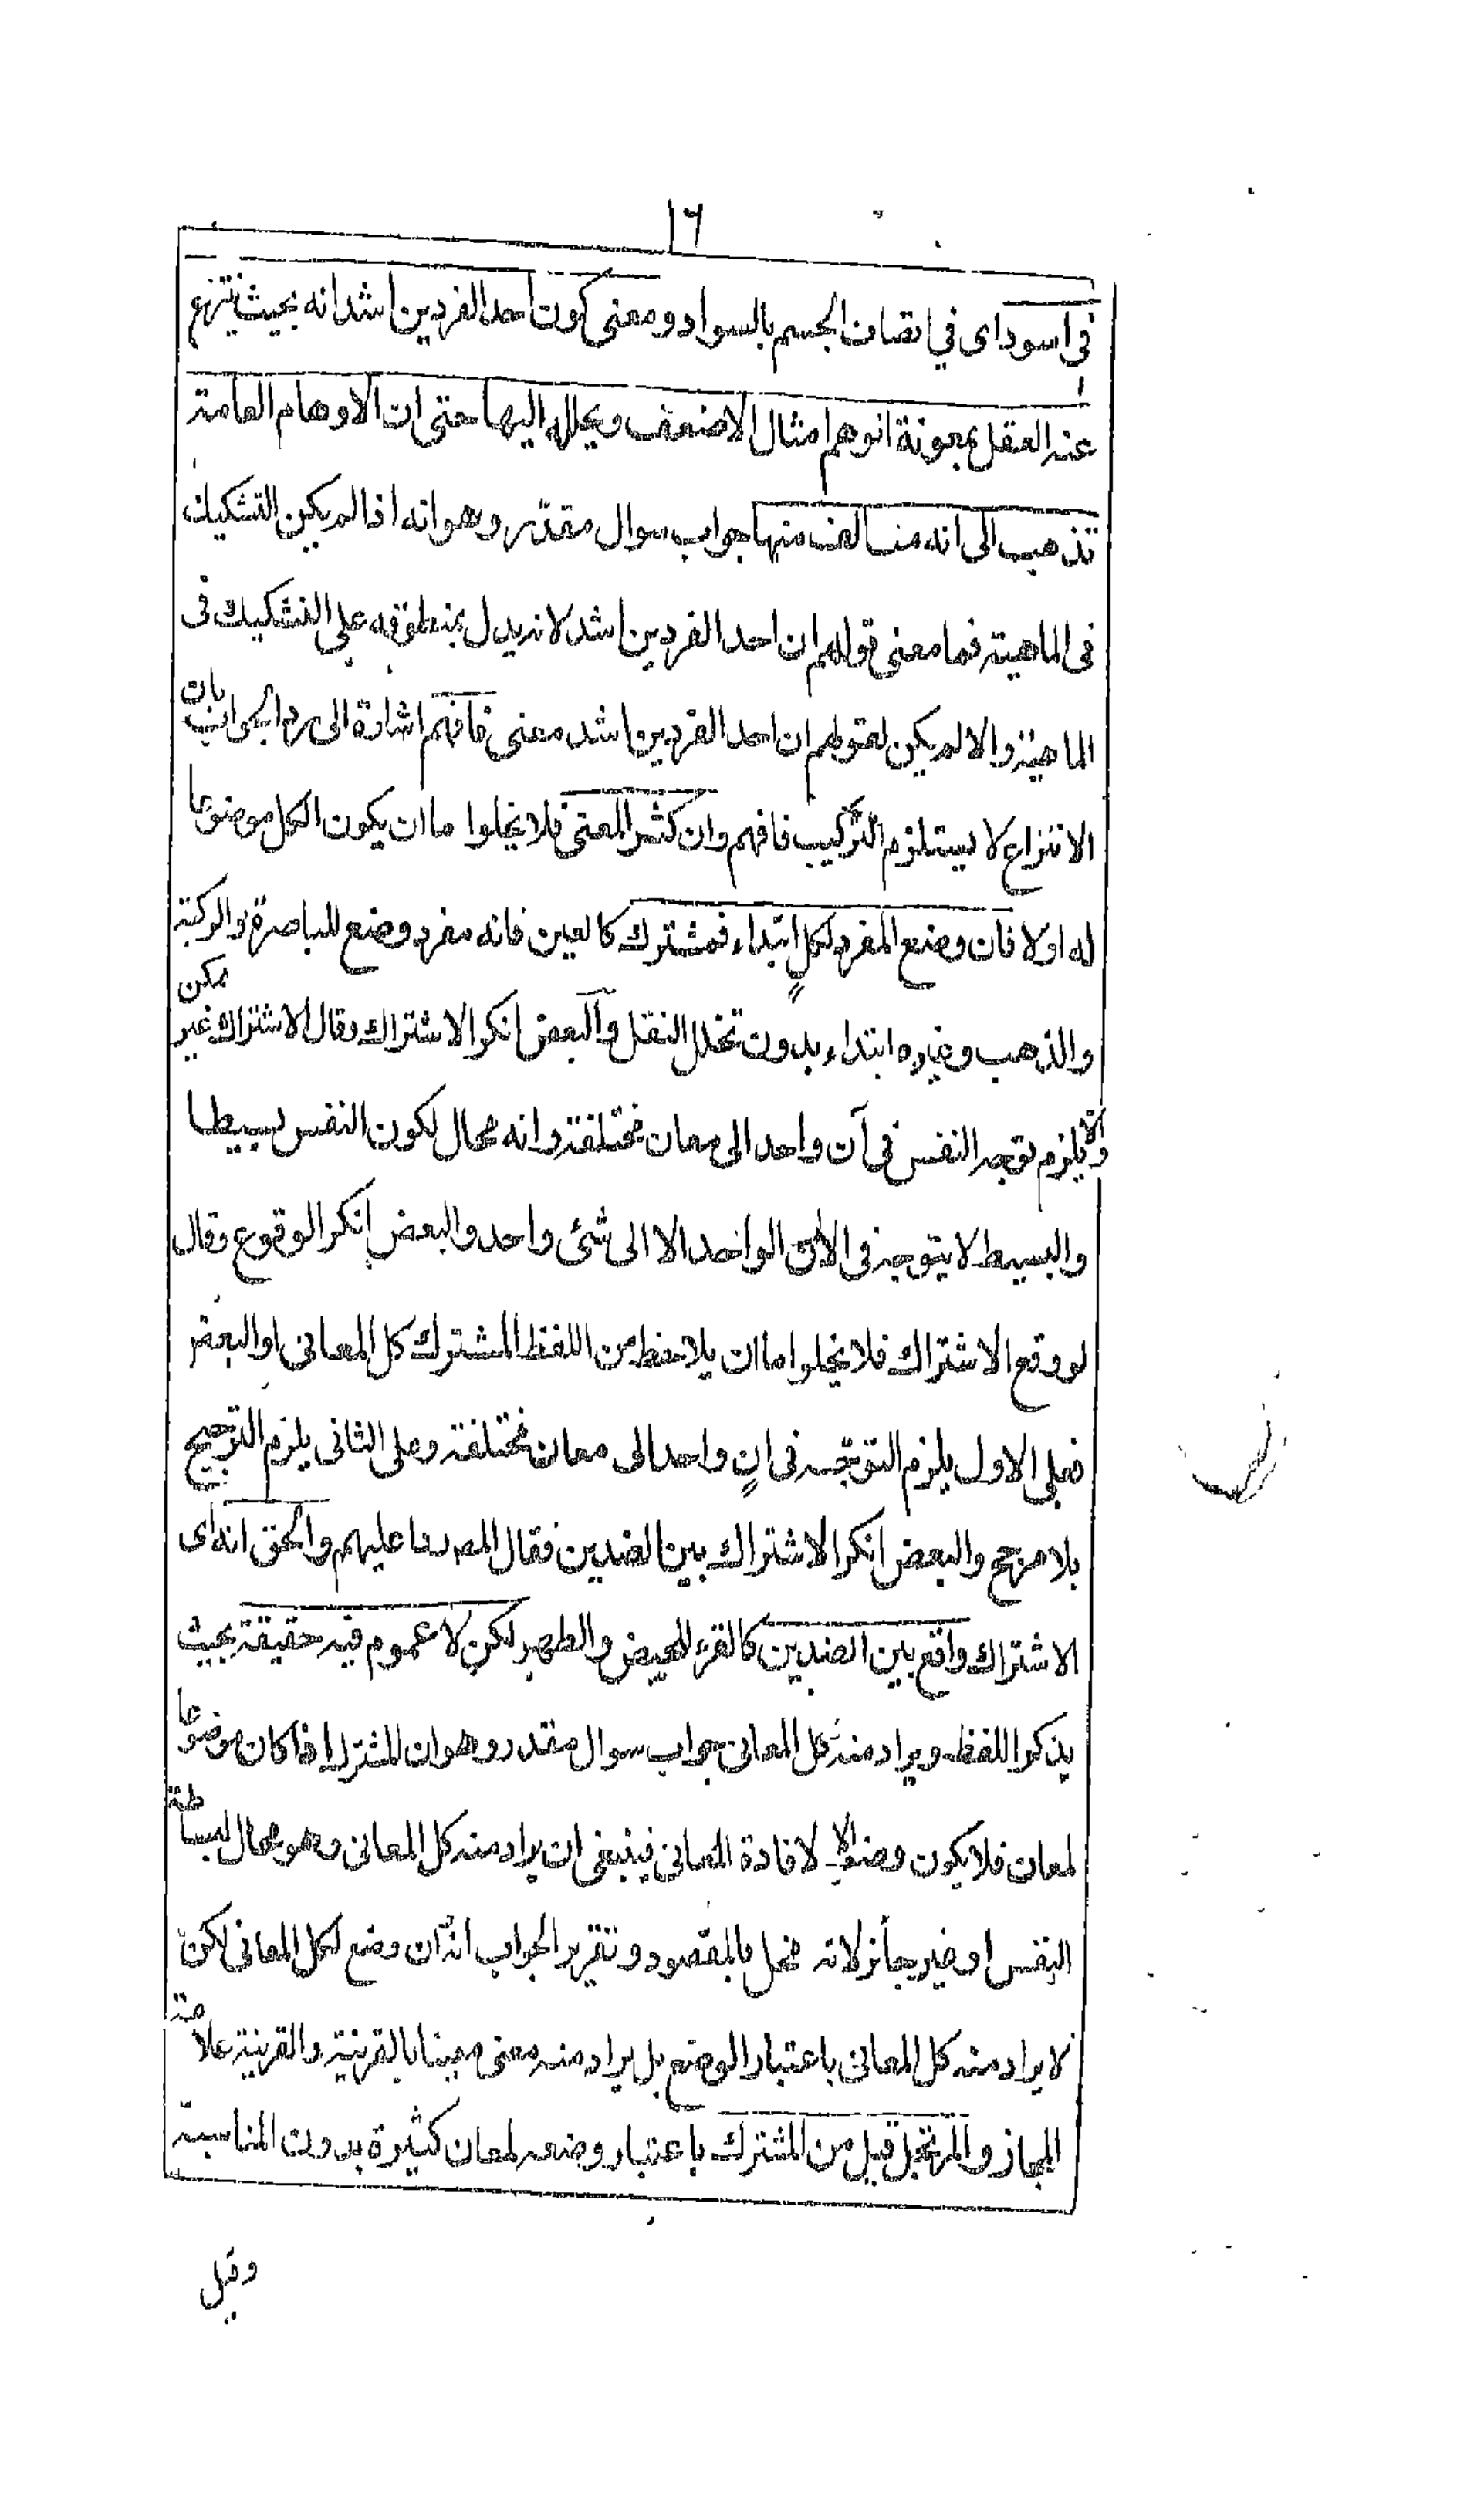 ١٦
في اسود اى في اتصاف الجسم بالسواد ومعنى كون احد الفردين اشد انه بحيث ينتزع
عنه العقل بمعونة الوهم امثال الاضعف ويحلله اليها حتى ان الاوهام العامة
تذهب الى انه متألف منها جواب سوال مقدر وهو انه اذا لم يكن التشكيك
فى الماهية فما معنى قولهم ان احد الفردين اشد لانه يدل بمنطوقه على التشكيك فى
الماهية والا لم يكن لقولهم ان احد الفردين اشد معنى فافهم اشارة الى رد الجواب بان
الانتزاع لا يستلزم التركيب فافهم وان كثر المعنى فلا يخلوا اما ان يكون الكل موضوعا
له اولا فان وضع المفرد لكلٍ ابتداء فمشترك كالعين فانه مفرد وضع للباصرة والركبة
والذهب وغيره ابتداء بدون تخلل النقل والبعض انكر الاشتراك وقال الاشتراك غير ممكن
والا يلزم توجه النفس فى آن واحد الى معان مختلفة وانه محال لكون النفس بسيطا
والبسيط لا يتوجه فى الآن الواحد الا الى شئ واحد والبعض انكر الوقوع وقال
لو وقع الاشتراك فلا يخلوا اما ان يلاحظ من اللفظ المشترك كل المعانى او البعض
فعلى الاول يلزم التوجّه فى انٍ واحد الى معان مختلفة وعلى الثانى يلزم الترجيح
بلا مرجح والبعض انكر الاشتراك بين الضدين فقال المصـ ردا عليهم والحق انه اى
الاشتراك واقع بين الضدين كالقرء للحيض والطهر لكن لا عموم فيه حقيقة بحيث
يذكر اللفظ ويراد منه كل المعانى جواب سوال مقدر وهو ان المشترك اذا كان موضوعا
لمعان فلا يكون وضعه الا لافادة المعانى فينبغى ان يراد منه كل المعانى وهو محال لبساطة
النفس او غير جائز لانه مخل بالمقصود وتقرير الجواب انه ان وضع لكل المعانى لكن
لا يراد منه كل المعانى باعتبار الوضع بل يراد منه معنى معينا بالقرينة والقرينة علامة
المجاز والمرتجل قيل من المشترك باعتبار وضعه لمعان كثيرة بدون المناسبة
وقيل